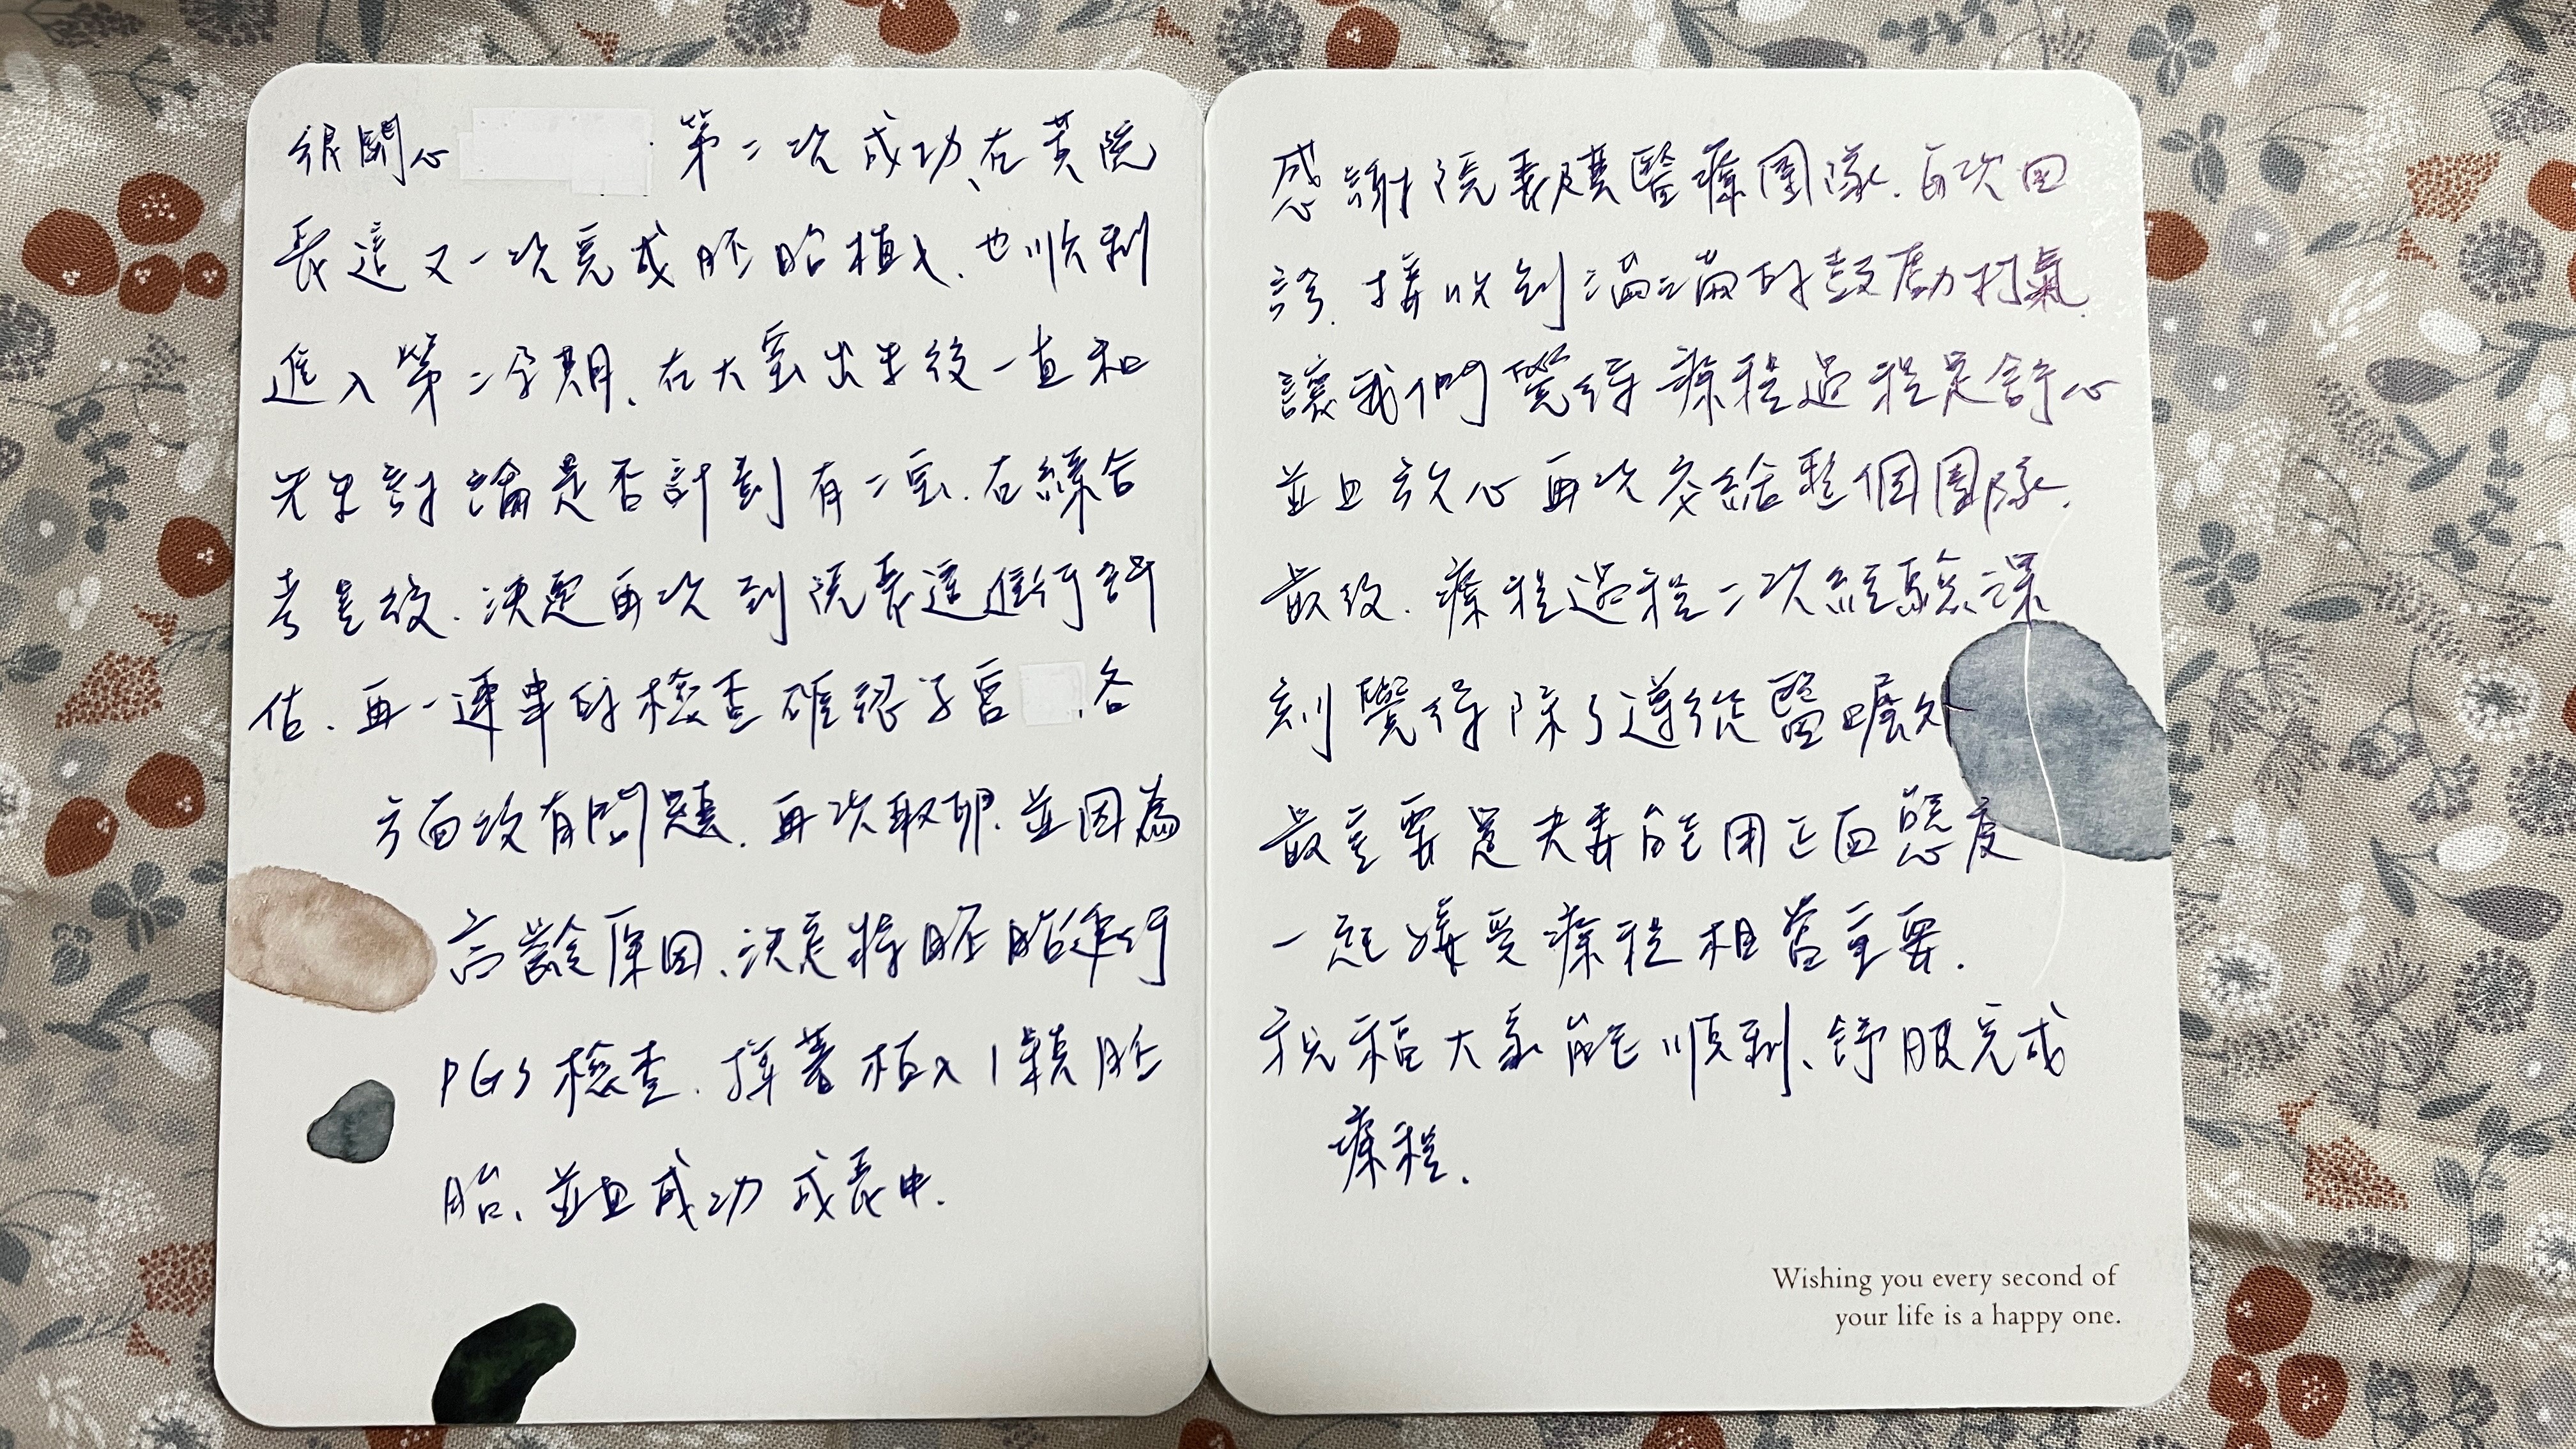 很開心 第二次成功、在黃院
長這又一次完成胚胎植入、也順利
進入第二孕期、在大寶出生後一直和
先生討論是否計劃有二寶、在綜合
考量後、決定再次到院長這進行評
估、再一連串的檢查確認子宮 、各
方面沒有問題、再次取卵、並因為
高齡原因、決定將胚胎進行
PGS檢查、接著植入1顆胚
胎、並且成功成長中.
感謝院長曁醫療團隊、每次回
診、接收到滿滿的鼓勵打氣、
讓我們覺得療程過程是舒心
並且放心再次交給整個團隊、
最後、療程過程二次經驗深
刻覺得除了遵從醫囑外
最主要是夫妻能用正面態度
一起接受療程相當重要.
祝福大家能順利、舒服完成
療程.
Wishing you every second of
your life is a happy one.